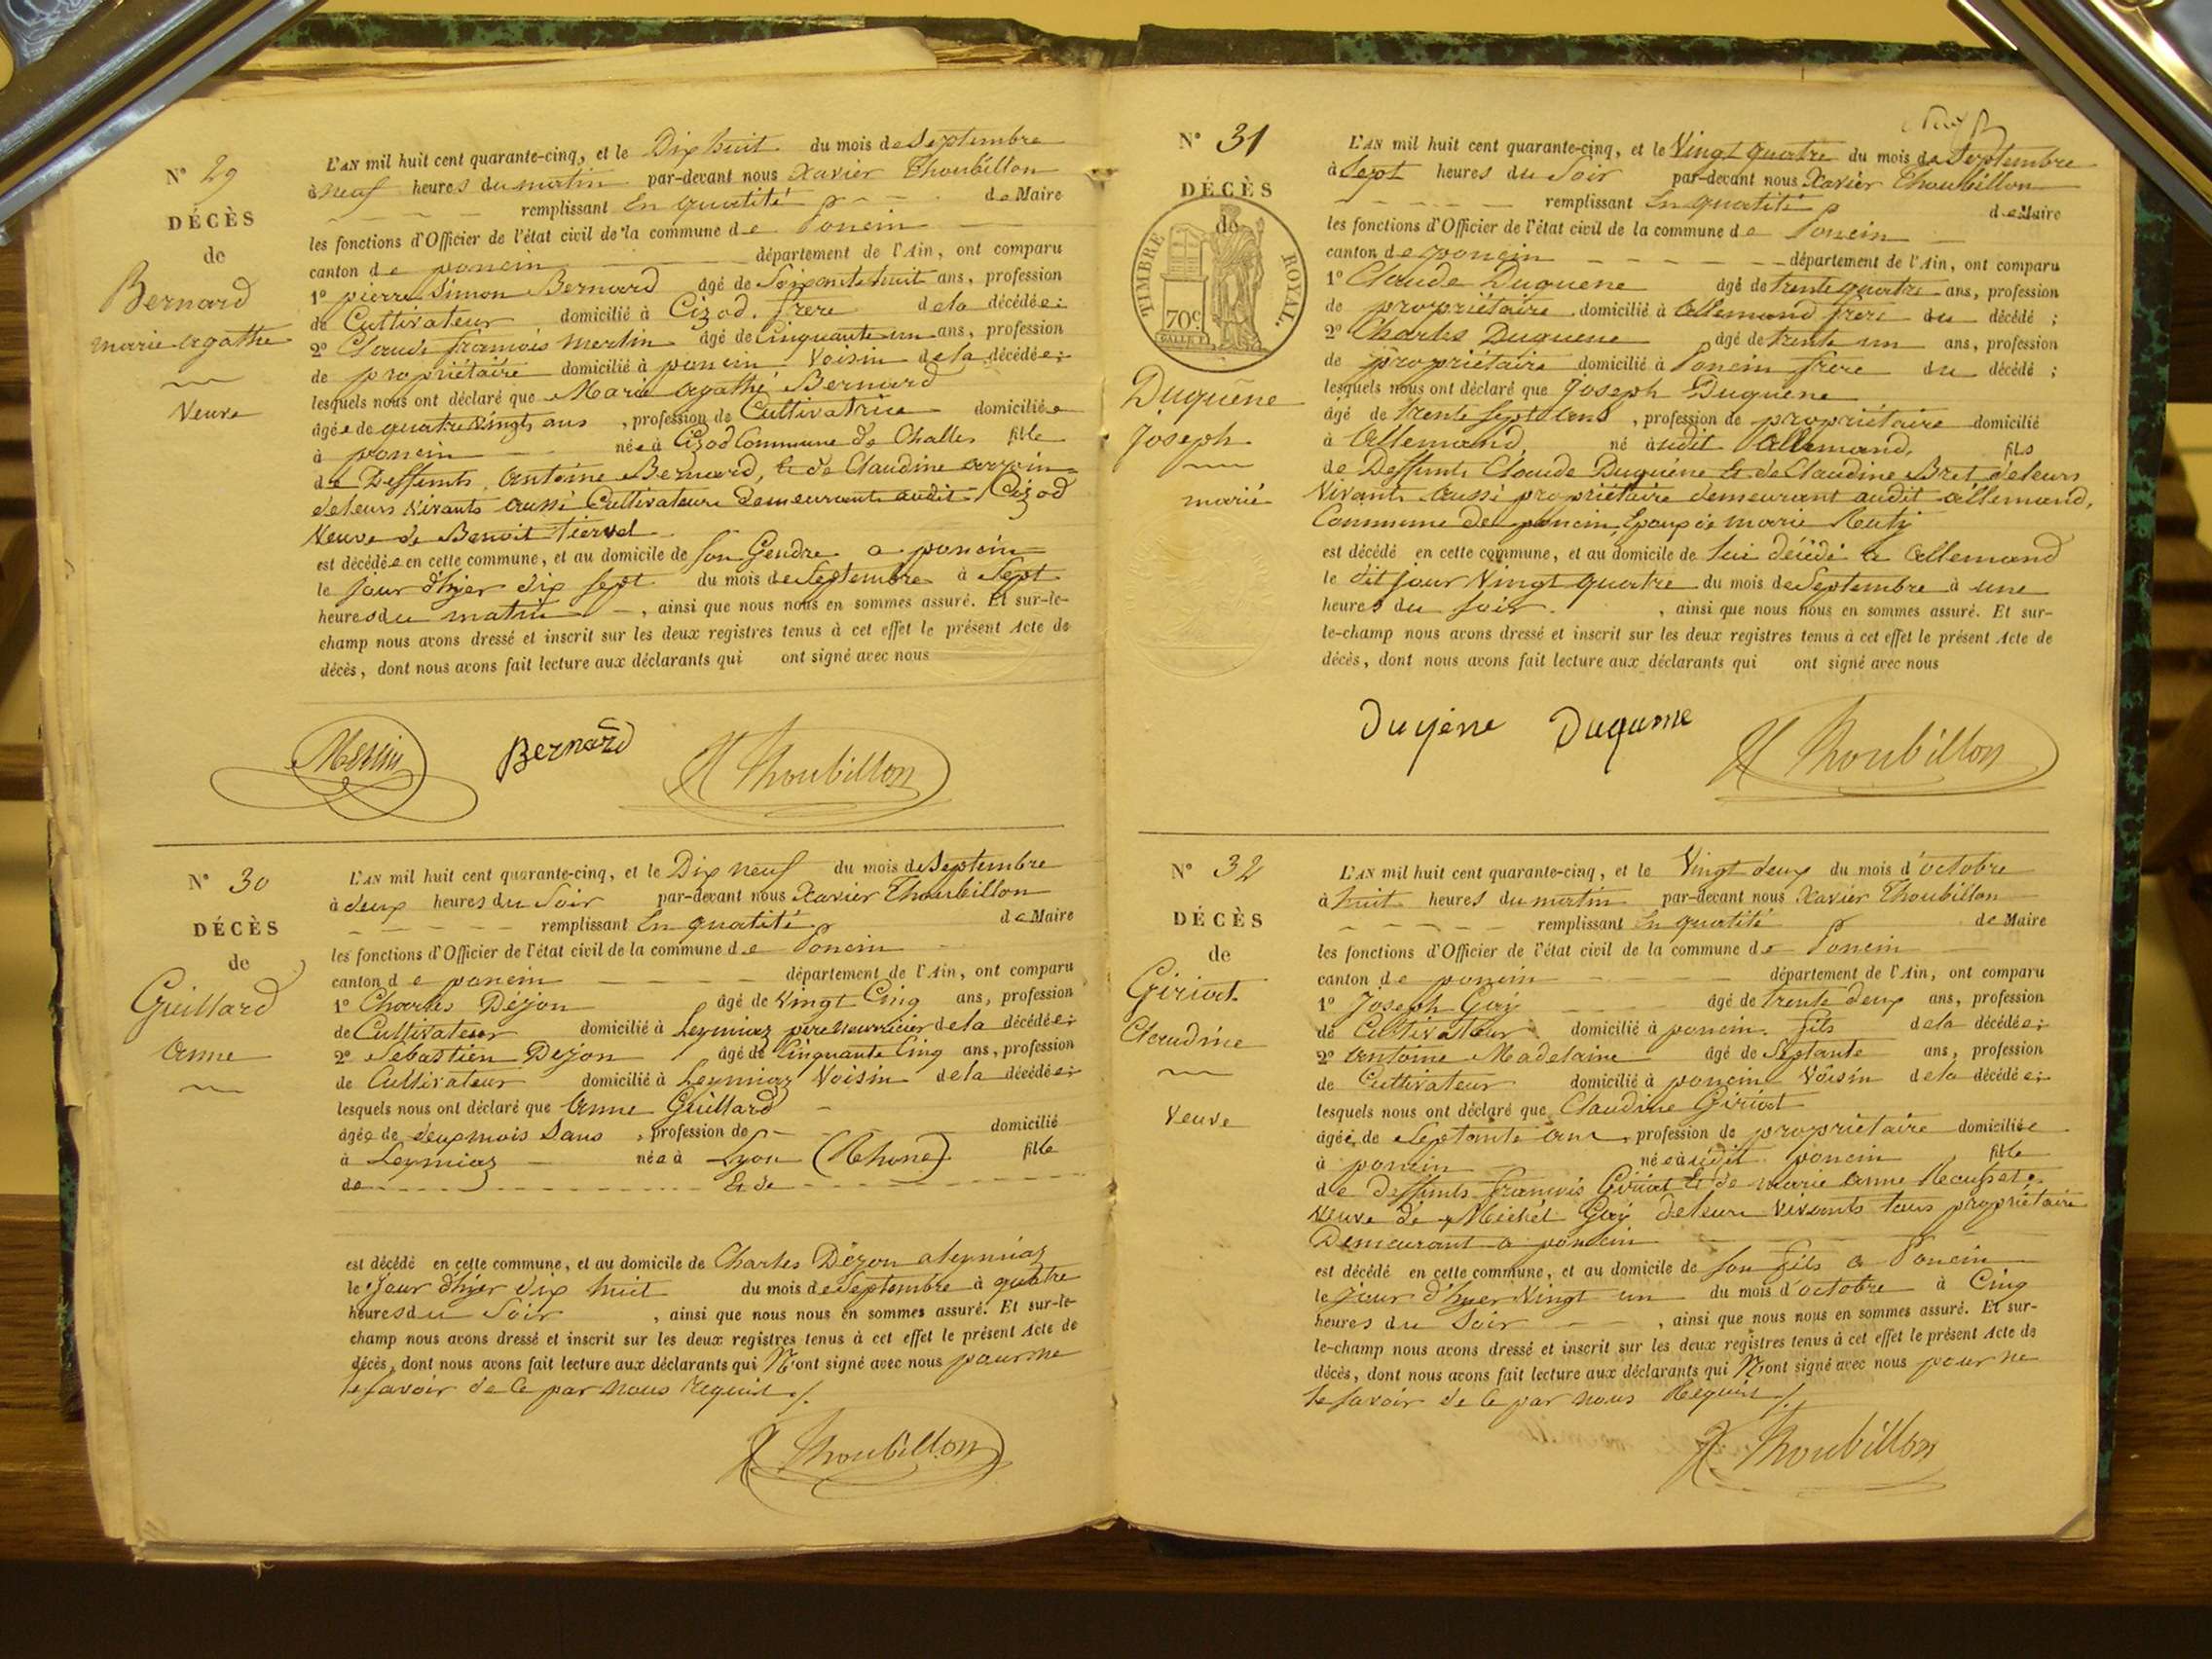 N° 29
DÉCÈS
de
Bernard
marie agathe
Veuve
L'AN mil huit cent quarante-cinq, et le Dix huit du mois de Septembre
à neuf heures du matin par-devant nous Xavier Thoubillon
remplissant En quatité de Maire
les fonctions d'Officier de l'état civil de la commune de Poncin
canton de poncin département de l'Ain, ont comparu
1° pierre Simon Bernard âgé de Soixante huit ans, profession
de Cultivateur domicilié à Cizod. frere de la décédée;
2° Claude françois Merlin âgé de Cinquante un ans, profession
de propriétaire domicilié à poncin Voisin de la décédée;
lesquels nous ont déclaré que Marie agathe Bernard
âgée de quatre Vingts ans, profession de Cultivatrice domiciliée
à poncin née à Cizod Commune de Challes fille
de Deffunts Antoine Bernard, et de Claudine
de leurs Vivants aussi Cultivateurs demeurant audit Cizod
Veuve de Benoit Tiervel
est décédée en cette commune, et au domicile de Son Gendre a poncin
le jour d'hjer dix Sept du mois de Septembre à Sept
heures du matin, ainsi que nous nous en sommes assuré. Et sur-le-
champ nous avons dressé et inscrit sur les deux registres tenus à cet effet le présent Acte de
décès, dont nous avons fait lecture aux déclarants qui ont signé avec nous
Merlin Bernard X Thoubillon
N° 30
DÉCÈS
de
Guillard
Anne
L'AN mil huit cent quarante-cinq, et le Dix neuf du mois de Septembre
à deux heures du Soir par-devant nous Xavier Thoubillon
remplissant En quatité de Maire
les fonctions d'Officier de l'état civil de la commune de Poncin
canton de poncin département de l'Ain, ont comparu
1° Charles Dejon âgé de Vingt Cinq ans, profession
de Cultivateur domicilié à Leymiaz pere nourricier de la décédée;
2° Sebastien Dejon âgé de Cinquante Cinq ans, profession
de Cultivateur domicilié à Leymiaz Voisin de la décédée;
lesquels nous ont déclaré que Anne Guillard
âgée de deux mois Sans, profession de domicilié
à Leymiaz née à Lyon (Rhone) fille
de Et de
est décédé en cette commune, et au domicile de Charles Dejon a leymiaz
le Jour d'hjer dix huit du mois de Septembre à quatre
heures du Soir, ainsi que nous nous en sommes assuré. Et sur-le-
champ nous avons dressé et inscrit sur les deux registres tenus à cet effet le présent Acte de
décès, dont nous avons fait lecture aux déclarants qui N'ont signé avec nous pour ne
le Savoir de Ce par nous requis ./.
X Thoubillon
N° 31
DÉCÈS
de
TIMBRE ROYAL.
70c
Duquêne
Joseph
marié
L'AN mil huit cent quarante-cinq, et le Vingt quatre du mois de Septembre
à Sept heures du Soir par-devant nous Xavier Thoubillon
remplissant En quatité de Maire
les fonctions d'Officier de l'état civil de la commune de Poncin
canton de poncin département de l'Ain, ont comparu
1° Claude Duquene âgé de trente quatre ans, profession
de propriétaire domicilié à Allemand frere du décédé;
2° Charles Duquene âgé de trente un ans, profession
de propriétaire domicilié à Poncin frere du décédé;
lesquels nous ont déclaré que Joseph Duquene
âgé de Trente Sept ans, profession de propriétaire domicilié
à Allemand, né audit Allemand, fils
de Deffunts Claude Duquene Et de Claudine Bret de leurs
Vivants aussi propriétaire demeurant audit allemand,
Commune de poncin Epoux de marie
est décédé en cette commune, et au domicile de lui décédé a Allemand
le dit jour Vingt quatre du mois de Septembre à une
heures du Soir, ainsi que nous nous en sommes assuré. Et sur-
le-champ nous avons dressé et inscrit sur les deux registres tenus à cet effet le présent Acte de
décès, dont nous avons fait lecture aux déclarants qui ont signé avec nous
Duqêne Duquene X Thoubillon
N° 32
DÉCÈS
de
Giriat
Claudine
Veuve
L'AN mil huit cent quarante-cinq, et le Vingt deux du mois d'octobre
à huit heures du matin par-devant nous Xavier Thoubillon
remplissant En quatité de Maire
les fonctions d'Officier de l'état civil de la commune de Poncin
canton de poncin département de l'Ain, ont comparu
1° Joseph Gay âgé de trente deux ans, profession
de Cultivateur domicilié à poncin. fils de la décédée;
2° Antoine Madelaine âgé de Septante ans, profession
de Cultivateur domicilié à poncin Voisin de la décédée;
lesquels nous ont déclaré que Claudine Giriat
âgée de Septante ans, profession de propriétaire domiciliée
à poncin née audit poncin fille
de deffunts francois Giriat Et de marie Anne
veuve de Michel Gay de leurs Vivants tous propriétaire
Demeurant a poncin
est décédé en cette commune, et au domicile de Son fils a Poncin
le jour d'hyer Vingt un du mois d'octobre à Cinq
heures du Soir, ainsi que nous nous en sommes assuré. Et sur-
le-champ nous avons dressé et inscrit sur les deux registres tenus à cet effet le présent Acte de
décès, dont nous avons fait lecture aux déclarants qui N'ont signé avec nous pour ne
le Savoir de Ce par nous Requis ./.
X Thoubillon